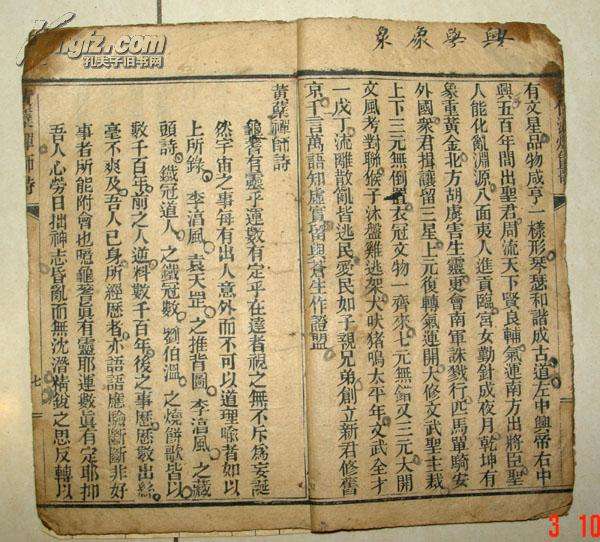 kongfz.com
孔夫子旧书网
興學象象
有文星品物咸亨一樣形琴瑟和諧成古道左中興帝右中
興五百年間出聖君周流天下賢良輔氣運南方出將臣聖
人能化亂淵源八面夷人進貢臨宮女勤針成夜月乾坤有
象重黃金北方胡虜害生靈更會南軍誅戮行匹馬單騎安
外國衆君揖讓留三星上元復轉氣運開大修文武聖主裁
上下三元無倒置衣冠文物一齊來七元無錯又三元大開
文風考對聯猴子沐盤雞逃架犬吠猪鳴太平年文武全才
一戊丁流離散亂皆逃民愛民如子親兄弟創立新君修舊
京千言萬語知虛實留與蒼生作證盟
黃蘗禪師詩
龜蓍有靈乎運數有定乎在達者視之無不斥為妄誕
然宇宙之事每有出人意外而不可以道理喻者如以
上所錄李淳風袁天罡之推背圖李淳風之藏
頭詩鐵冠道人之鐵冠數劉伯溫之燒餅歌皆以
數千百年前之人逆料數千百年後之事歷歷數出絲
毫不爽及吾人已身所經歷者亦語語應驗斷斷非好
事者所能附會也噫龜蓍眞有靈耶運數眞有定耶抑
吾人心勞日拙神志昏亂而無沈潛精銳之思反轉以
禪師詩
七
3 10